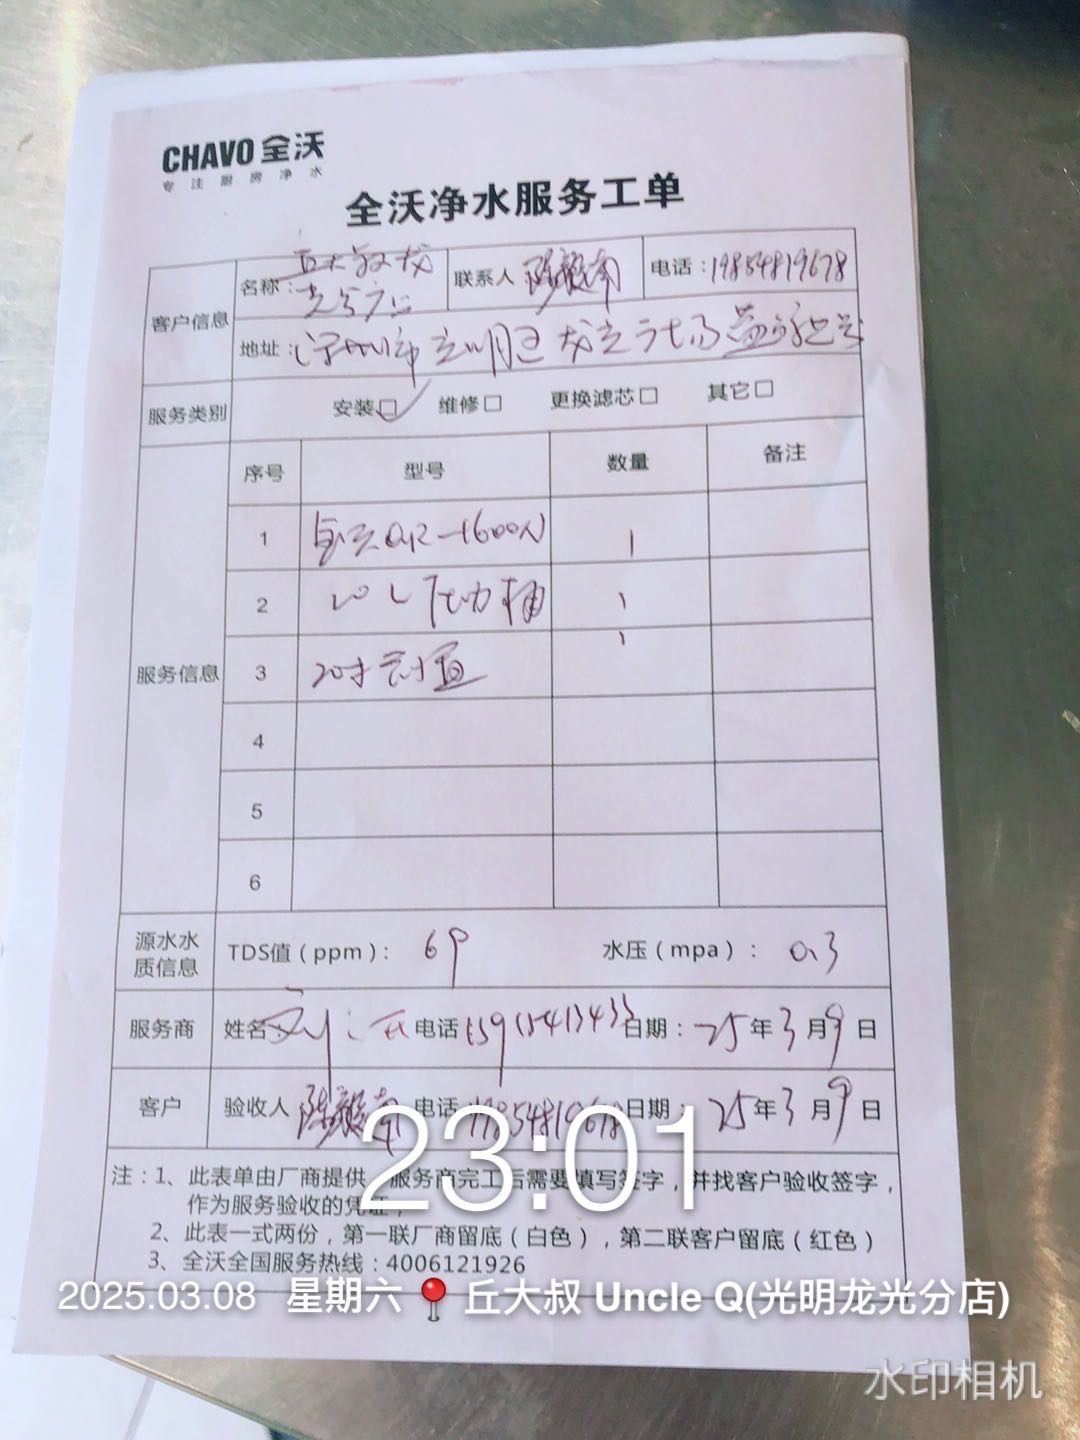 CHAVO 全沃
专注厨房净水
全沃净水服务工单
客户信息 名称: 丘大叔龙光 联系人 陈 南 电话:19854819678
地址: 深圳市光明区龙光
服务类别 安装☑ 维修□ 更换滤芯□ 其它□
服务信息 序号 型号 数量 备注
1 全沃 QR-1600N 1
2 20L压力桶 1
3 20寸前置 1
4
5
6
源水水质信息 TDS值(ppm): 69 水压(mpa): 0.3
服务商 姓名 刘 电话 日期: 25年3月9日
客户 验收人 陈 南 电话 日期: 25年3月9日
23:01
注:1、此表单由厂商提供,服务商完工后需要填写签字,并找客户验收签字,
作为服务验收的凭证,
2、此表一式两份,第一联厂商留底(白色),第二联客户留底(红色)
3、全沃全国服务热线:4006121926
2025.03.08 星期六 丘大叔 Uncle Q(光明龙光分店)
水印相机